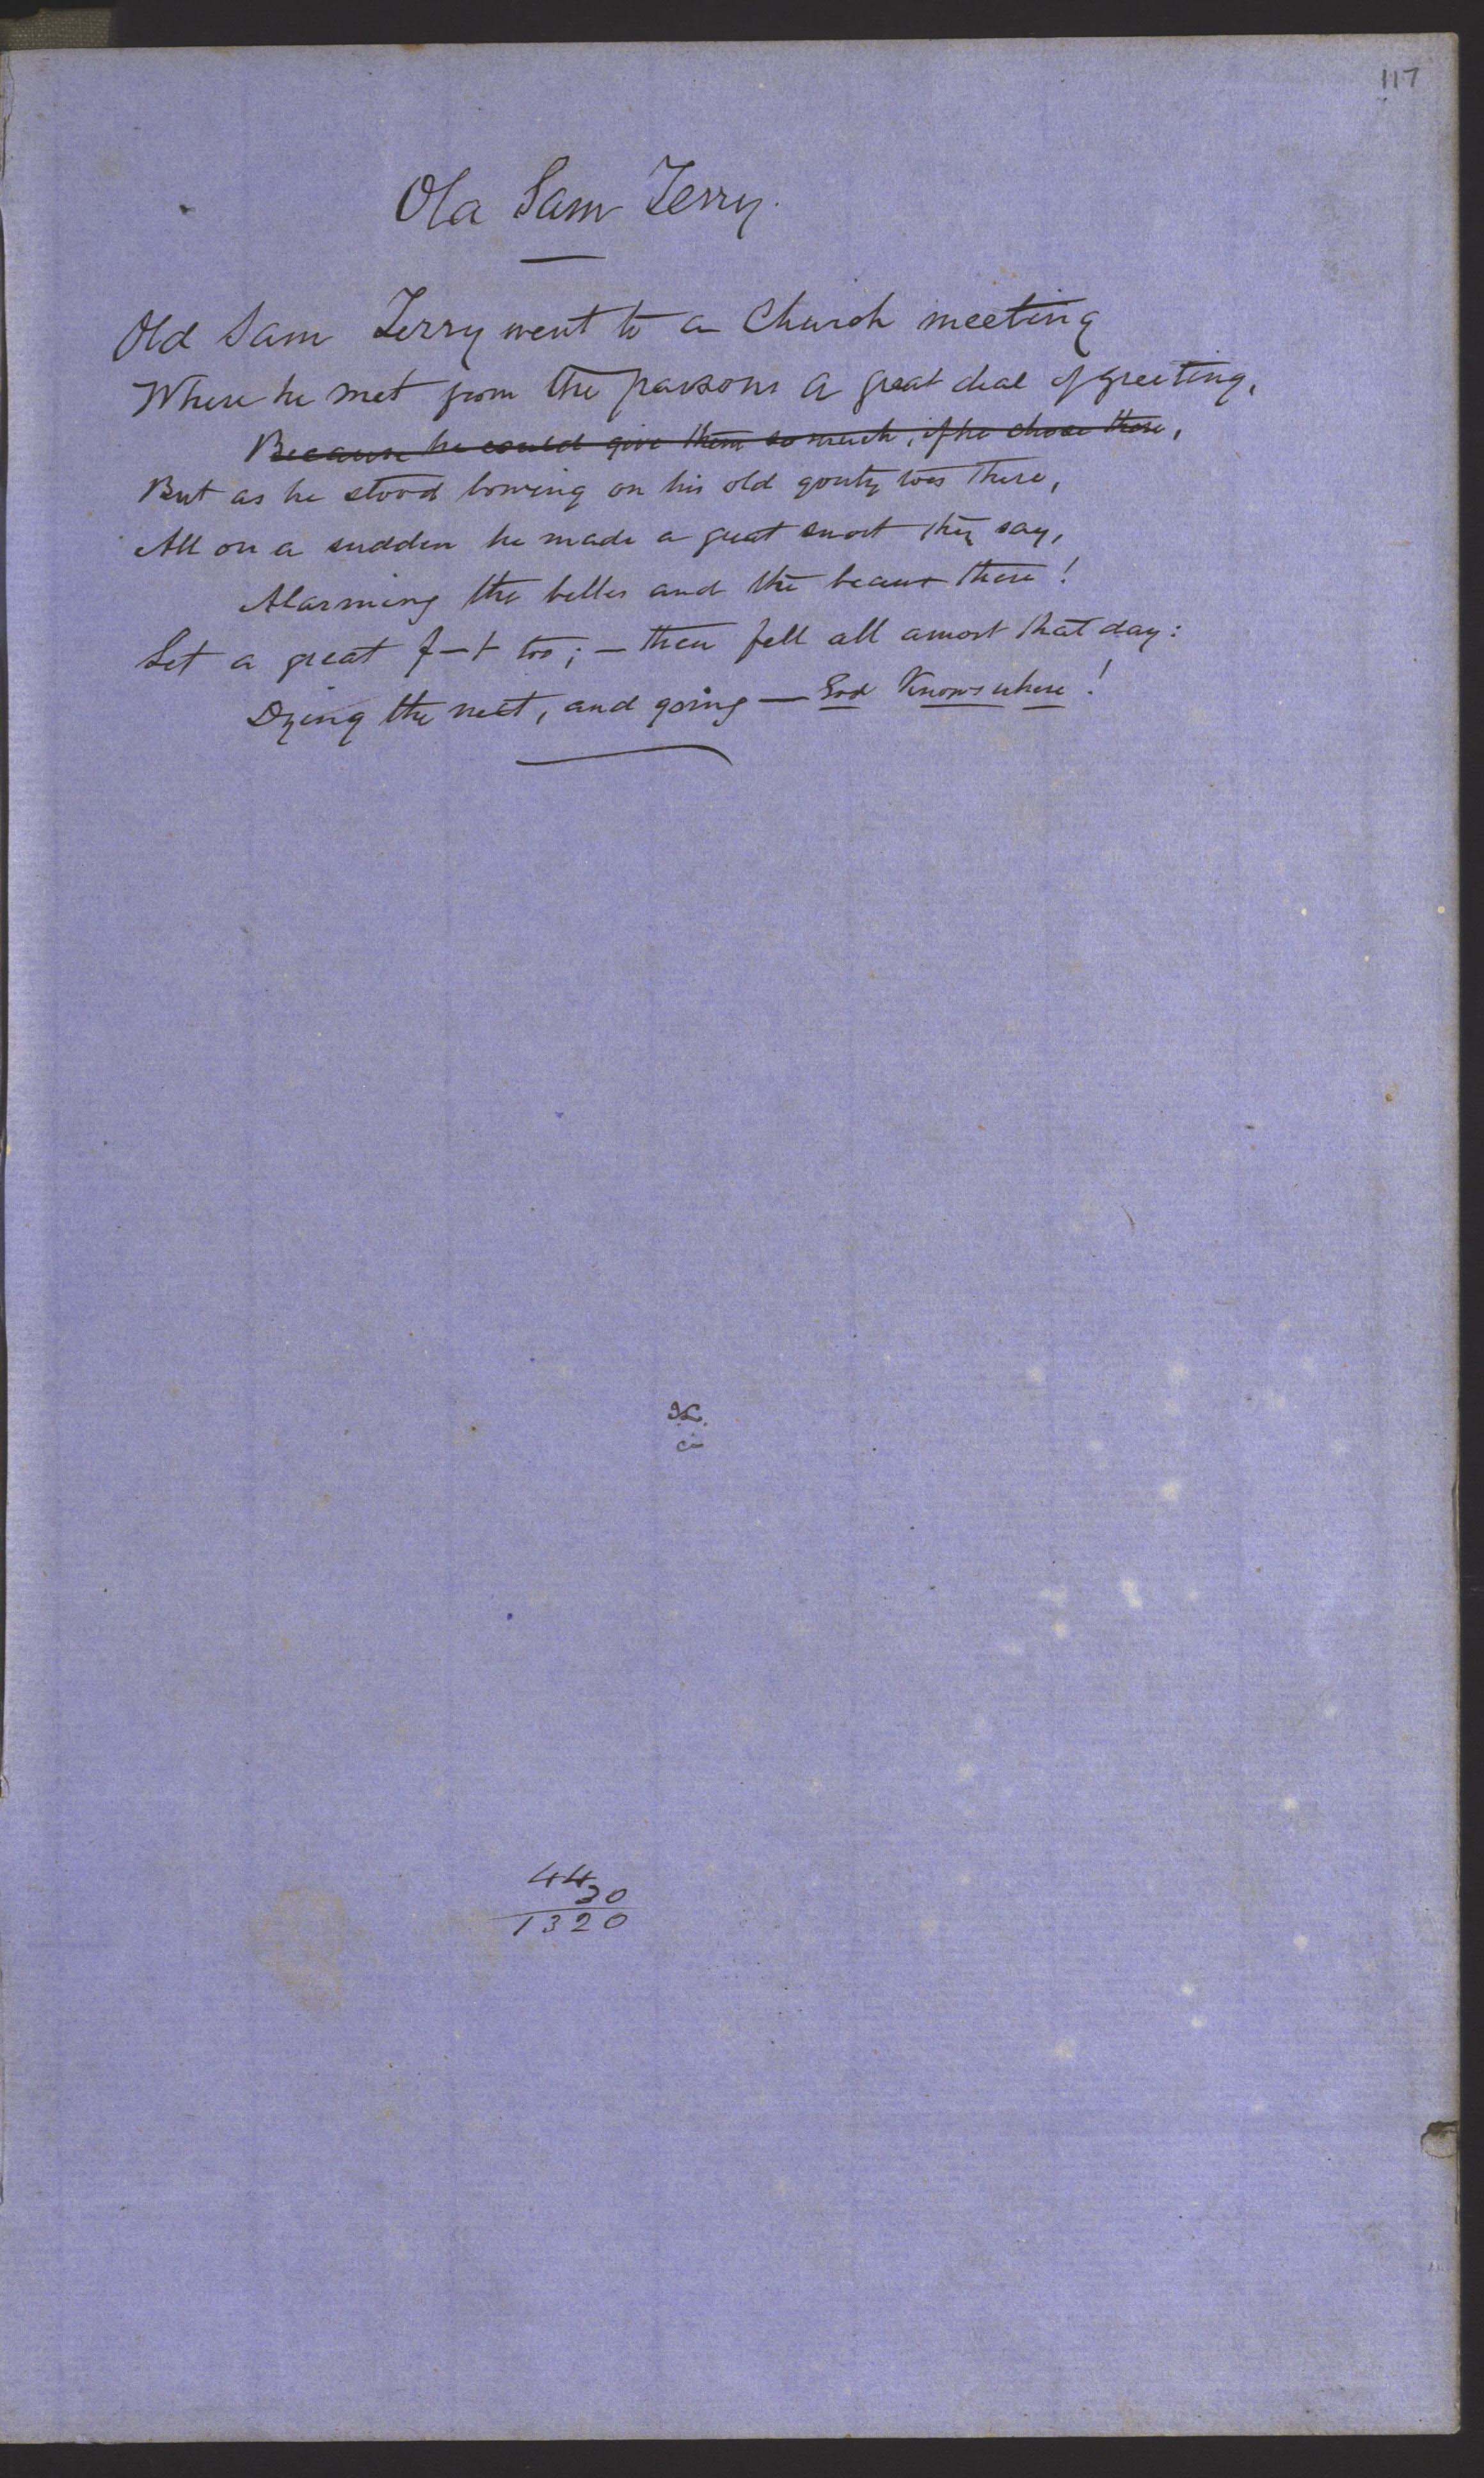 117
Old Sam Terry.
Old Sam Terry went to a Church meeting
Where he met from the parsons a great deal of greeting,
Because he could give them so much, if he chose there,
But as he stood bowing on his old gouty toes there,
All on a sudden he made a great snort they say,
Alarming the belles and the beaux there!
Let a great f—t too; — then fell all amort that day:
Dying the next, and going — God Knows where!
44
30
1320